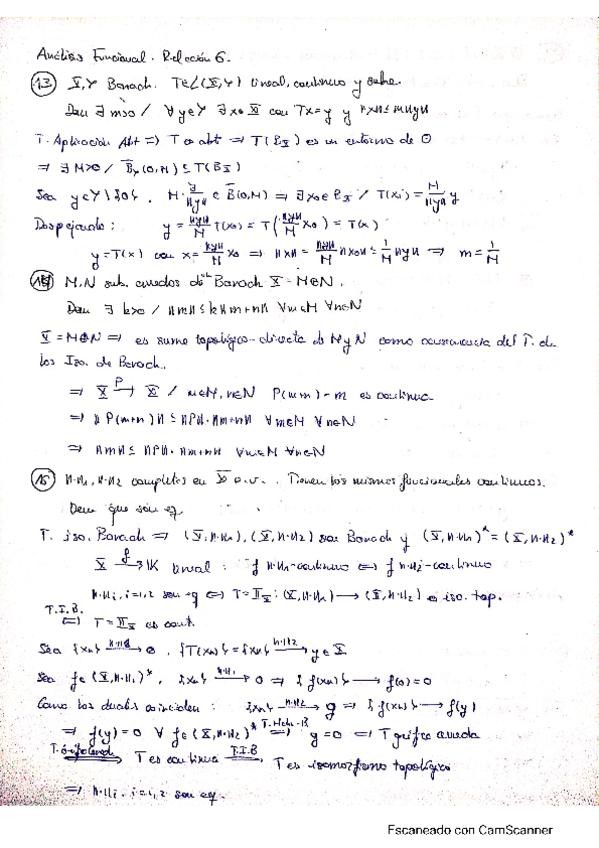 Análisis Funcional. Relación 6.
13) X, Y Banach. T∈L(X,Y) lineal, continuo y sobre.
Dem ∃ m>0 / ∀y∈Y ∃x∈X con Tx=y y ‖x‖≤m‖y‖
T. Aplicación Abt ⇒ T es abt ⇒ T(B_X) es un entorno de 0
⇒ ∃ M>0 / B̄_Y(0,M) ⊆ T(B_X)
Sea y∈Y\{0}. M·y/‖y‖ ∈ B̄(0,M) ⇒ ∃x₀∈B_X / T(x₀) = M/‖y‖ y
Despejando: y = ‖y‖/M T(x₀) = T(‖y‖/M x₀) = T(x)
y=T(x) con x=‖y‖/M x₀ ⇒ ‖x‖ = ‖y‖/M ‖x₀‖ ≤ 1/M ‖y‖ ⇒ m = 1/M
14) M,N sub. cerrados de Banach X = M⊕N.
Dem ∃ k>0 / ‖m‖≤k‖m+n‖ ∀m∈M ∀n∈N
X = M⊕N ⇒ es suma topológico-directa de M y N como consecuencia del T. de
los Iso. de Banach.
⇒ X →P X / m∈M, n∈N P(m+n) = m es continua
⇒ ‖P(m+n)‖ ≤ ‖P‖·‖m+n‖ ∀m∈M ∀n∈N
⇒ ‖m‖ ≤ ‖P‖·‖m+n‖ ∀m∈M ∀n∈N
15) ‖·‖₁, ‖·‖₂ completas en X e.v. Tienen los mismos funcionales continuos.
Dem que son eq.
T. iso. Banach ⇒ (X,‖·‖₁), (X,‖·‖₂) son Banach y (X,‖·‖₁)* = (X,‖·‖₂)*
X →f K lineal : f ‖·‖₁-continuo ⇔ f ‖·‖₂-continuo
‖·‖ᵢ, i=1,2 son eq ⇔ T=I_X : (X,‖·‖₁) → (X,‖·‖₂) es iso. top.
T.I.B. ⇔ T = I_X es cont.
Sea {xn} →‖·‖₁ 0, {T(xn)} = {xn} →‖·‖₂ y∈X
Sea f∈(X,‖·‖₁)*, {xn} →‖·‖₁ 0 ⇒ {f(xn)} → f(0)=0
Como los duales coinciden : {xn} →‖·‖₂ y ⇒ {f(xn)} → f(y)
⇒ f(y)=0 ∀ f∈(X,‖·‖₂)* T. Hahn-B ⇒ y=0 ⇔ T gráfica cerrada
⇒ T es continua T.I.B ⇒ T es isomorfismo topológico
⇒ ‖·‖ᵢ, i=1,2 son eq.
Escaneado con CamScanner